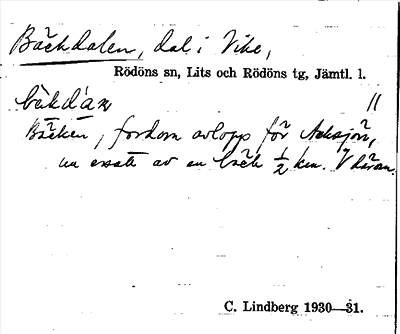 Bäckdalen, dal i Vike,
Rödöns sn, Lits och Rödöns tg, Jämtl. l.
bäkdáɴ 11
Bäcken, fordom avlopp för Naksjön,
nu ersatt av en bäck ½ km. V därom.
C. Lindberg 1930—31.